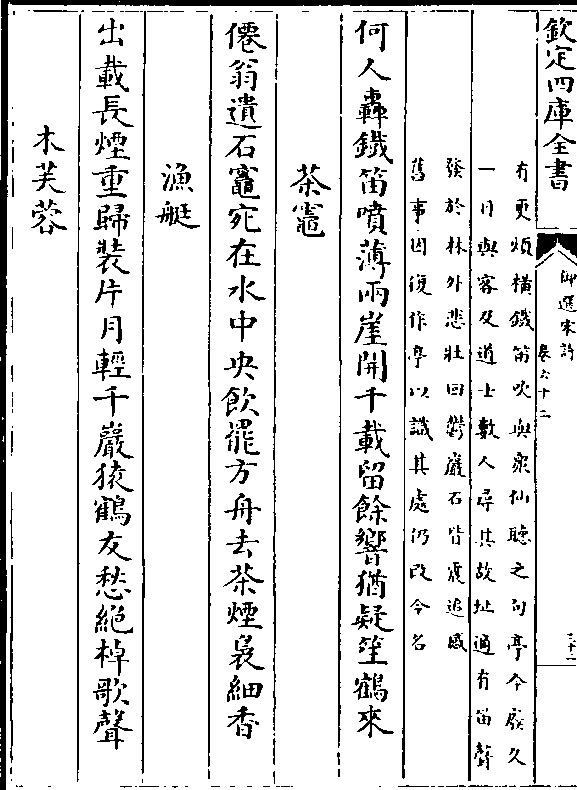 欽定四庫全書
御選宋詩
卷六十二
三十二
有更煩橫鐵笛吹與衆仙聽之句亭今廢久
一日與客及道士數人尋其故址適有笛聲
發於林外悲壯回鬱巖石皆震追感
舊事因復作亭以識其處仍改今名
何人轟鐵笛噴薄兩崖開千載留餘響猶疑笙鶴來
茶竈
僊翁遺石竈宛在水中央飲罷方舟去茶煙裊細香
漁艇
出載長煙重歸裝片月輕千巖猿鶴友愁絕棹歌聲
木芙蓉